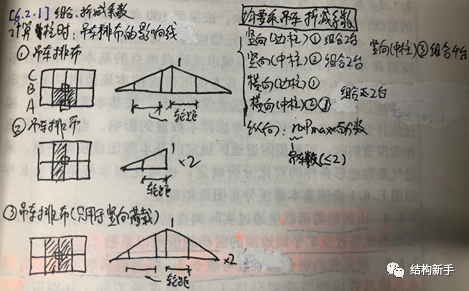 [6.2.1] 组合.折减系数
计算重柱时:吊车排布的影响线
① 吊车排布
C
B
A
1
轮距
② 吊车排布
1
×2
轮距
③ 吊车排布(只用于竖向荷载)
1
×2
轮距
吊车折减系数
竖向(边柱)① 组合2台
竖向(中柱)② 组合2台
竖向(中柱)③ 组合4台
横向(边柱)①
横向(中柱)
组合≤2台
纵向:
吊车数(≤2)
结构新手